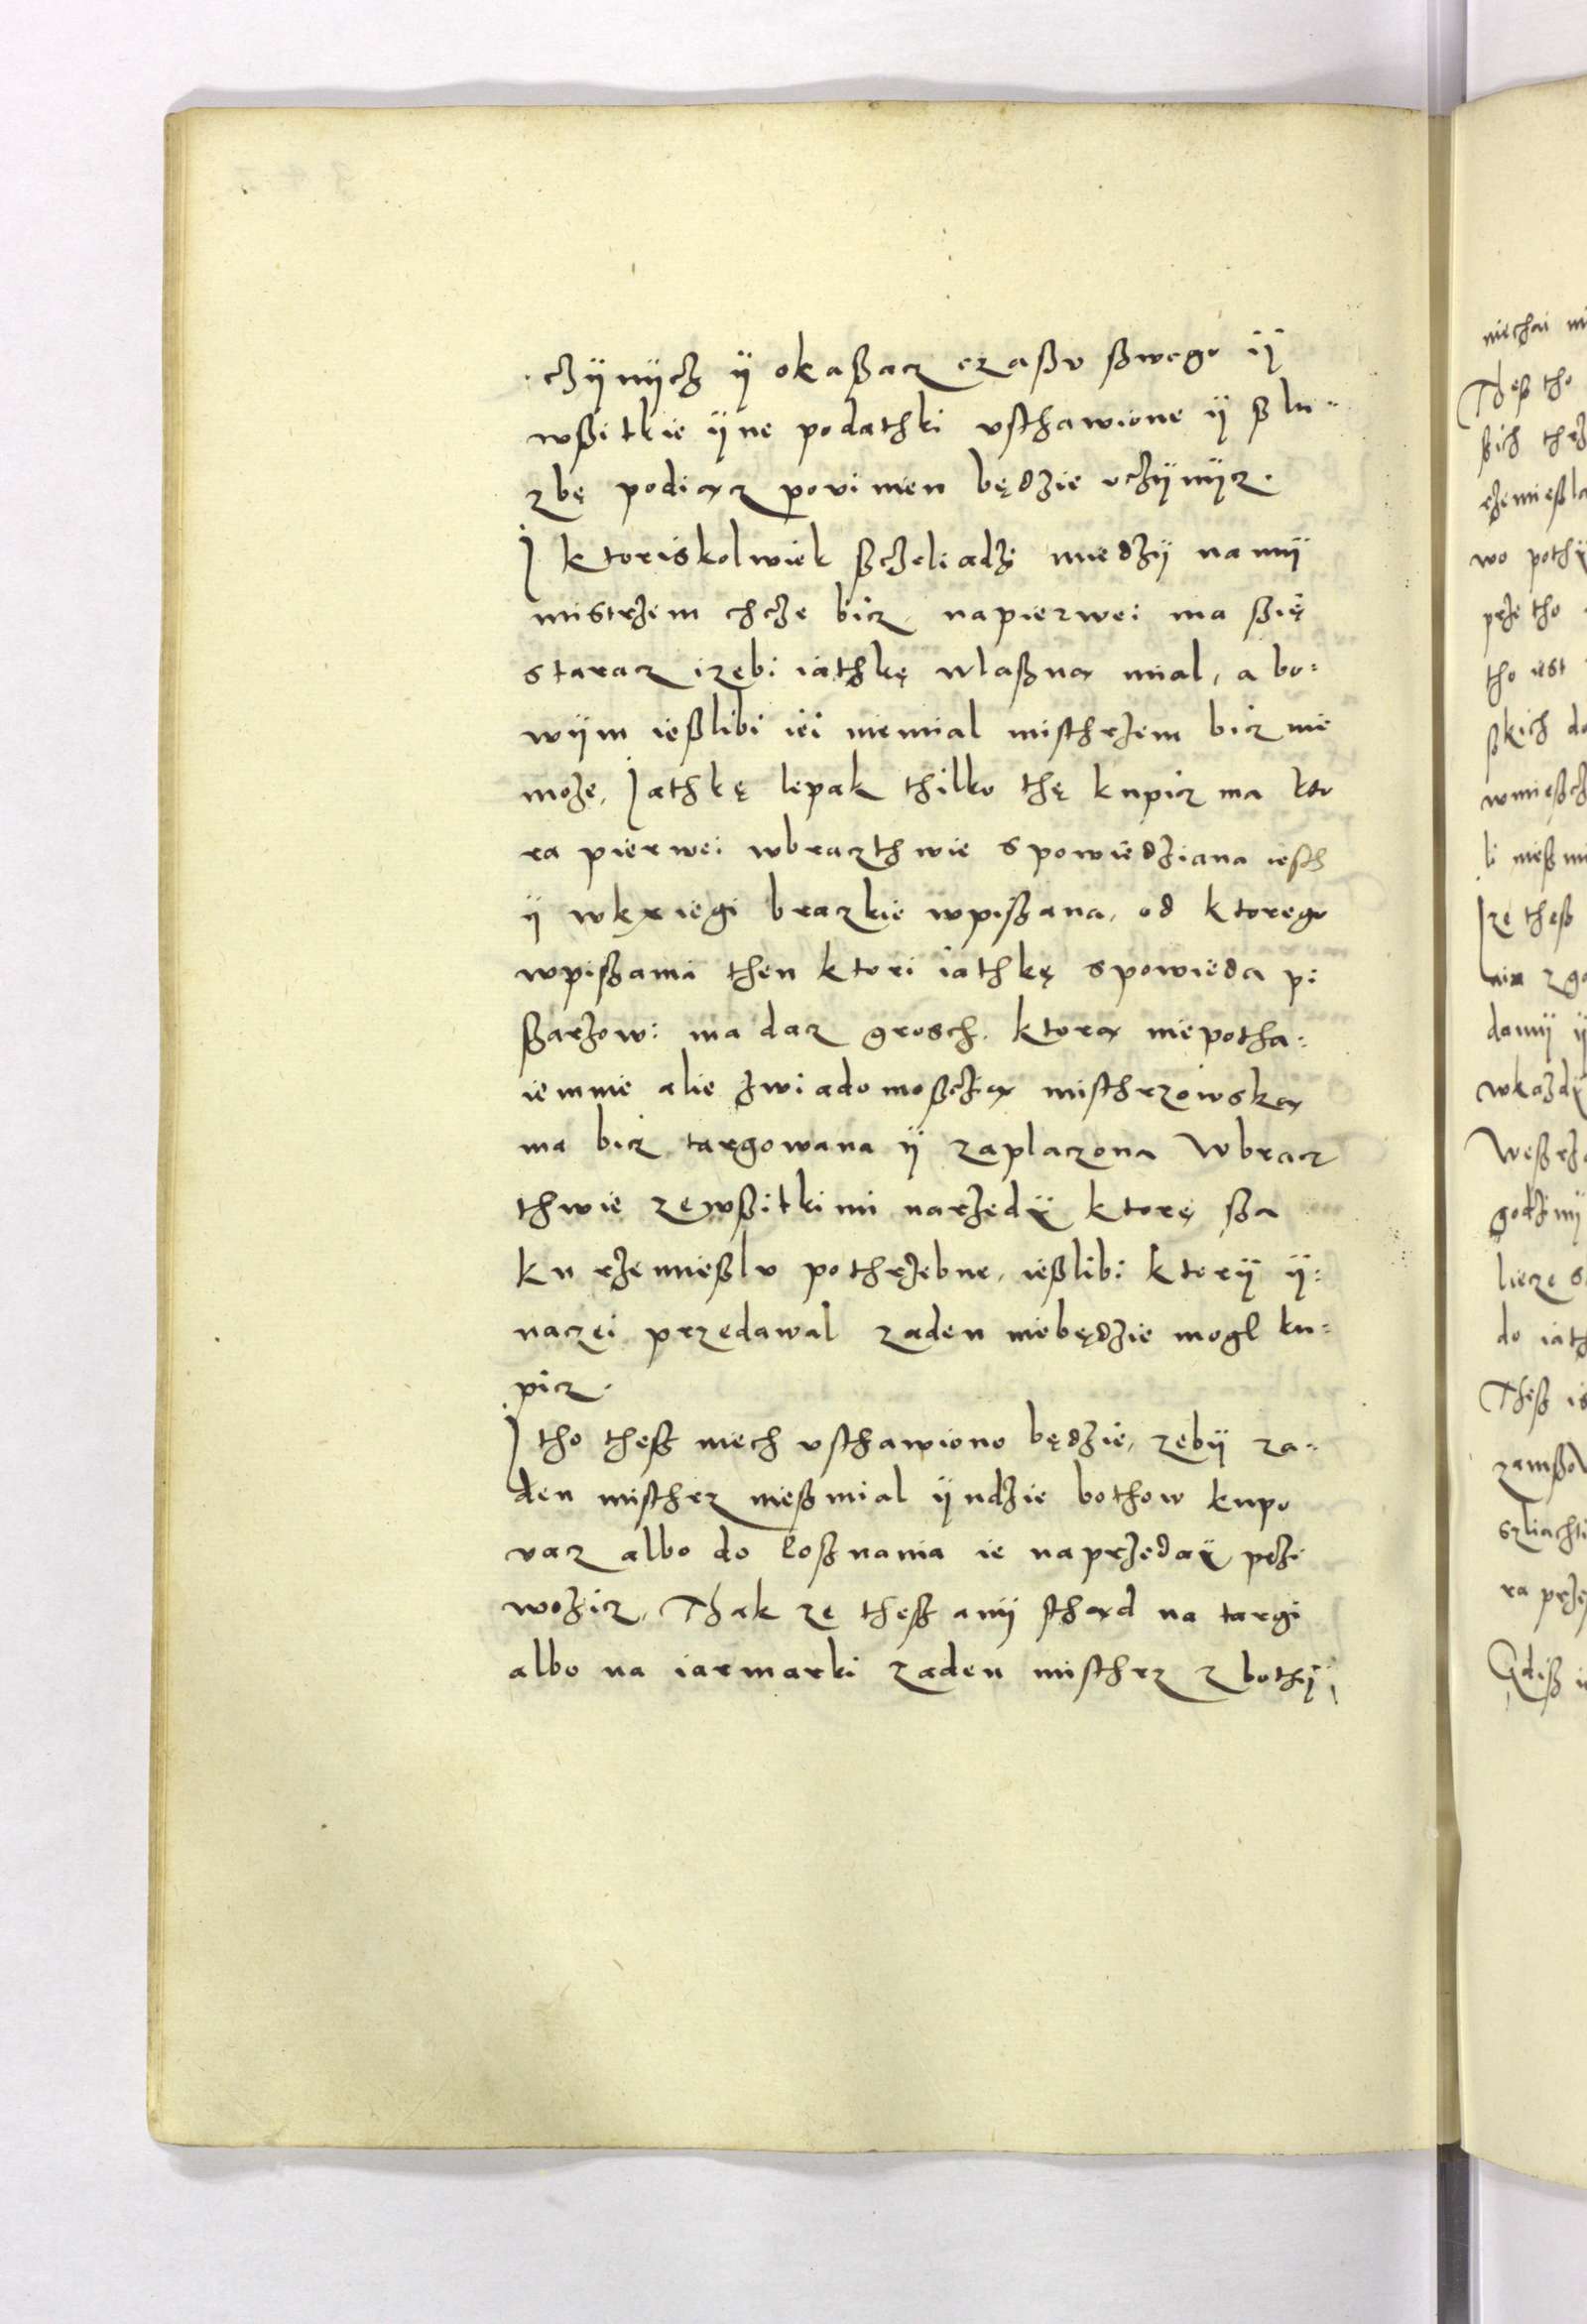 chÿnÿch ÿ okaßacz czaßv ßwego ÿ
wßitkie ÿne podathki vsthawione ÿ ßlu-
zbę podiącz povinien będzie vchÿnÿcz.
J ktoriskolwiek ßcheliadz miedzÿ namÿ
mistrzem chcze bicz napierwei ma ßię
staracz izebi iathkę wlaßną mial, a bo-
wÿm ießlibi iei niemial misthrzem bicz nie
moze. Jathkę lepak thilko thę kupicz ma kto
ra pierwei wbraczthwie spowiedziana iesth
ÿ wkxiegi brazkie wpißana, od ktorego
wpißania then ktori iathkę spowieda pi
ßarzowi ma dacz grosch. ktorą niepotha-
iemnie alie zwiadomoßczią misthrzowską
ma bicz targowana ÿ zaplaczona Wbracz
thwie zewßitkimi narzedÿ ktorę ßą
ku rzemießlv pothrzebne, ießlibi ktorÿ ÿ-
naczei przedawal zaden niebędzie mogl ku-
picz.
J tho theß niech vsthawiono będzie, zebÿ za-
den misthrz nießmial ÿndzie bothow kupo
vacz albo do Poßnania ie naprzedaÿ przi
wozicz, Thak ze theß anÿ sthąd na targi
albo na iarmarki zaden misthrz z bothÿ
niechai
Theß tho
rzemießla
wo
tho iest
ßkich
nia
damÿ
wkazdÿ
godzinÿ
Theß
szliachti
Gdiß